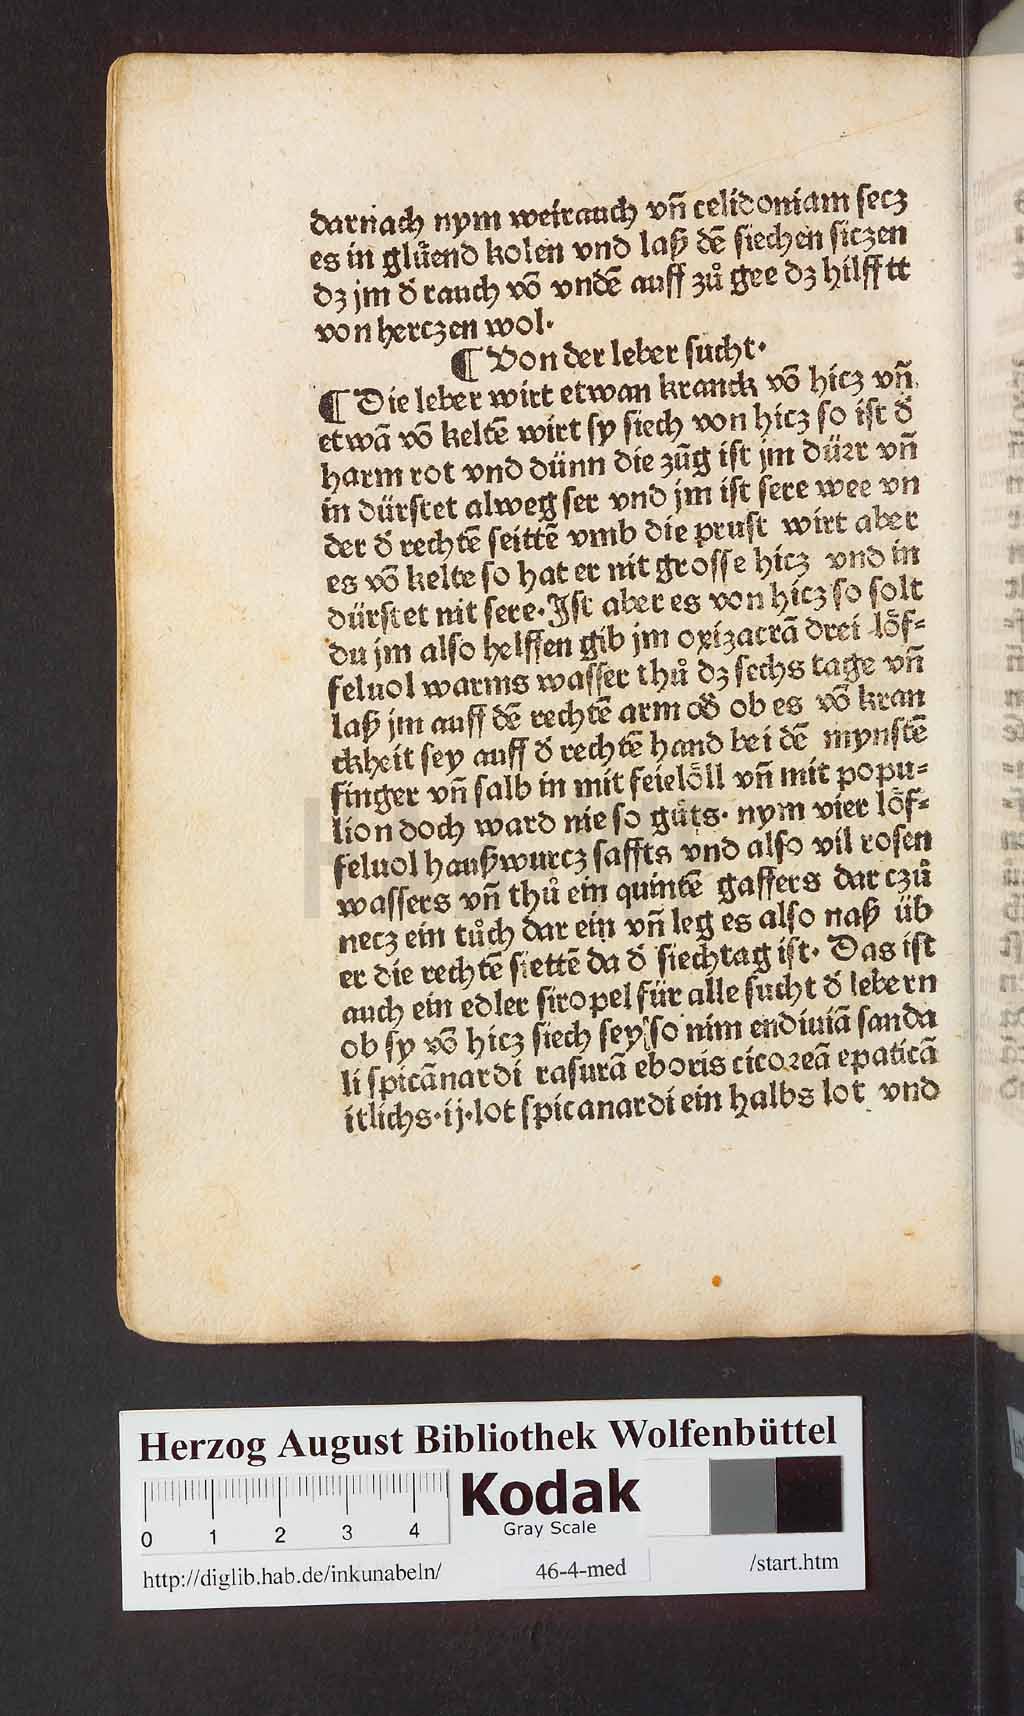 darnach nym weirauch vn̄ celidoniam secz
es in glůend kolen vnd laß dē siechen siczen
dz jm d̄ rauch vō vndē auff zů gee dz hilfftt
von herczen wol.
¶ Von der leber sucht.
¶ Die leber wirt etwan kranck vō hicz vn̄
etwā vō keltē wirt sy siech von hicz so ist d̄
harm rot vnd dünn die zūg ist jm dürr vn̄
in dürstet alweg ser vnd jm ist sere wee vn
der d̄ rechtē seittē vmb die prust wirt aber
es vō kelte so hat er nit grosse hicz vnd in
dürstet nit sere. Ist aber es von hicz so solt
du jm also helffen gib jm oxizacrā drei löf=
feluol warms wasser thů dz sechs tage vn̄
laß jm auff dē rechtē arm od̄ ob es vō kran
ckheit sey auff d̄ rechtē hand bei dē mynstē
finger vn̄ salb in mit feielöll vn̄ mit popu=
lion doch ward nie so gůts. nym vier löf=
feluol haußwurcz saffts vnd also vil rosen
wassers vn̄ thů ein quintē gaffers dar czů
necz ein tůch dar ein vn̄ leg es also naß üb
er die rechtē siettē da d̄ siechtag ist. Das ist
auch ein edler siropel für alle sucht d̄ lebern
ob sy vō hicz siech sey so nim endiuiā sanda
li spicānardi rasurā eboris cicoreā epaticā
itlichs.ij.lot spicanardi ein halbs lot vnd
Herzog August Bibliothek Wolfenbüttel
0 1 2 3 4
Kodak
Gray Scale
http://diglib.hab.de/inkunabeln/ 46-4-med /start.htm